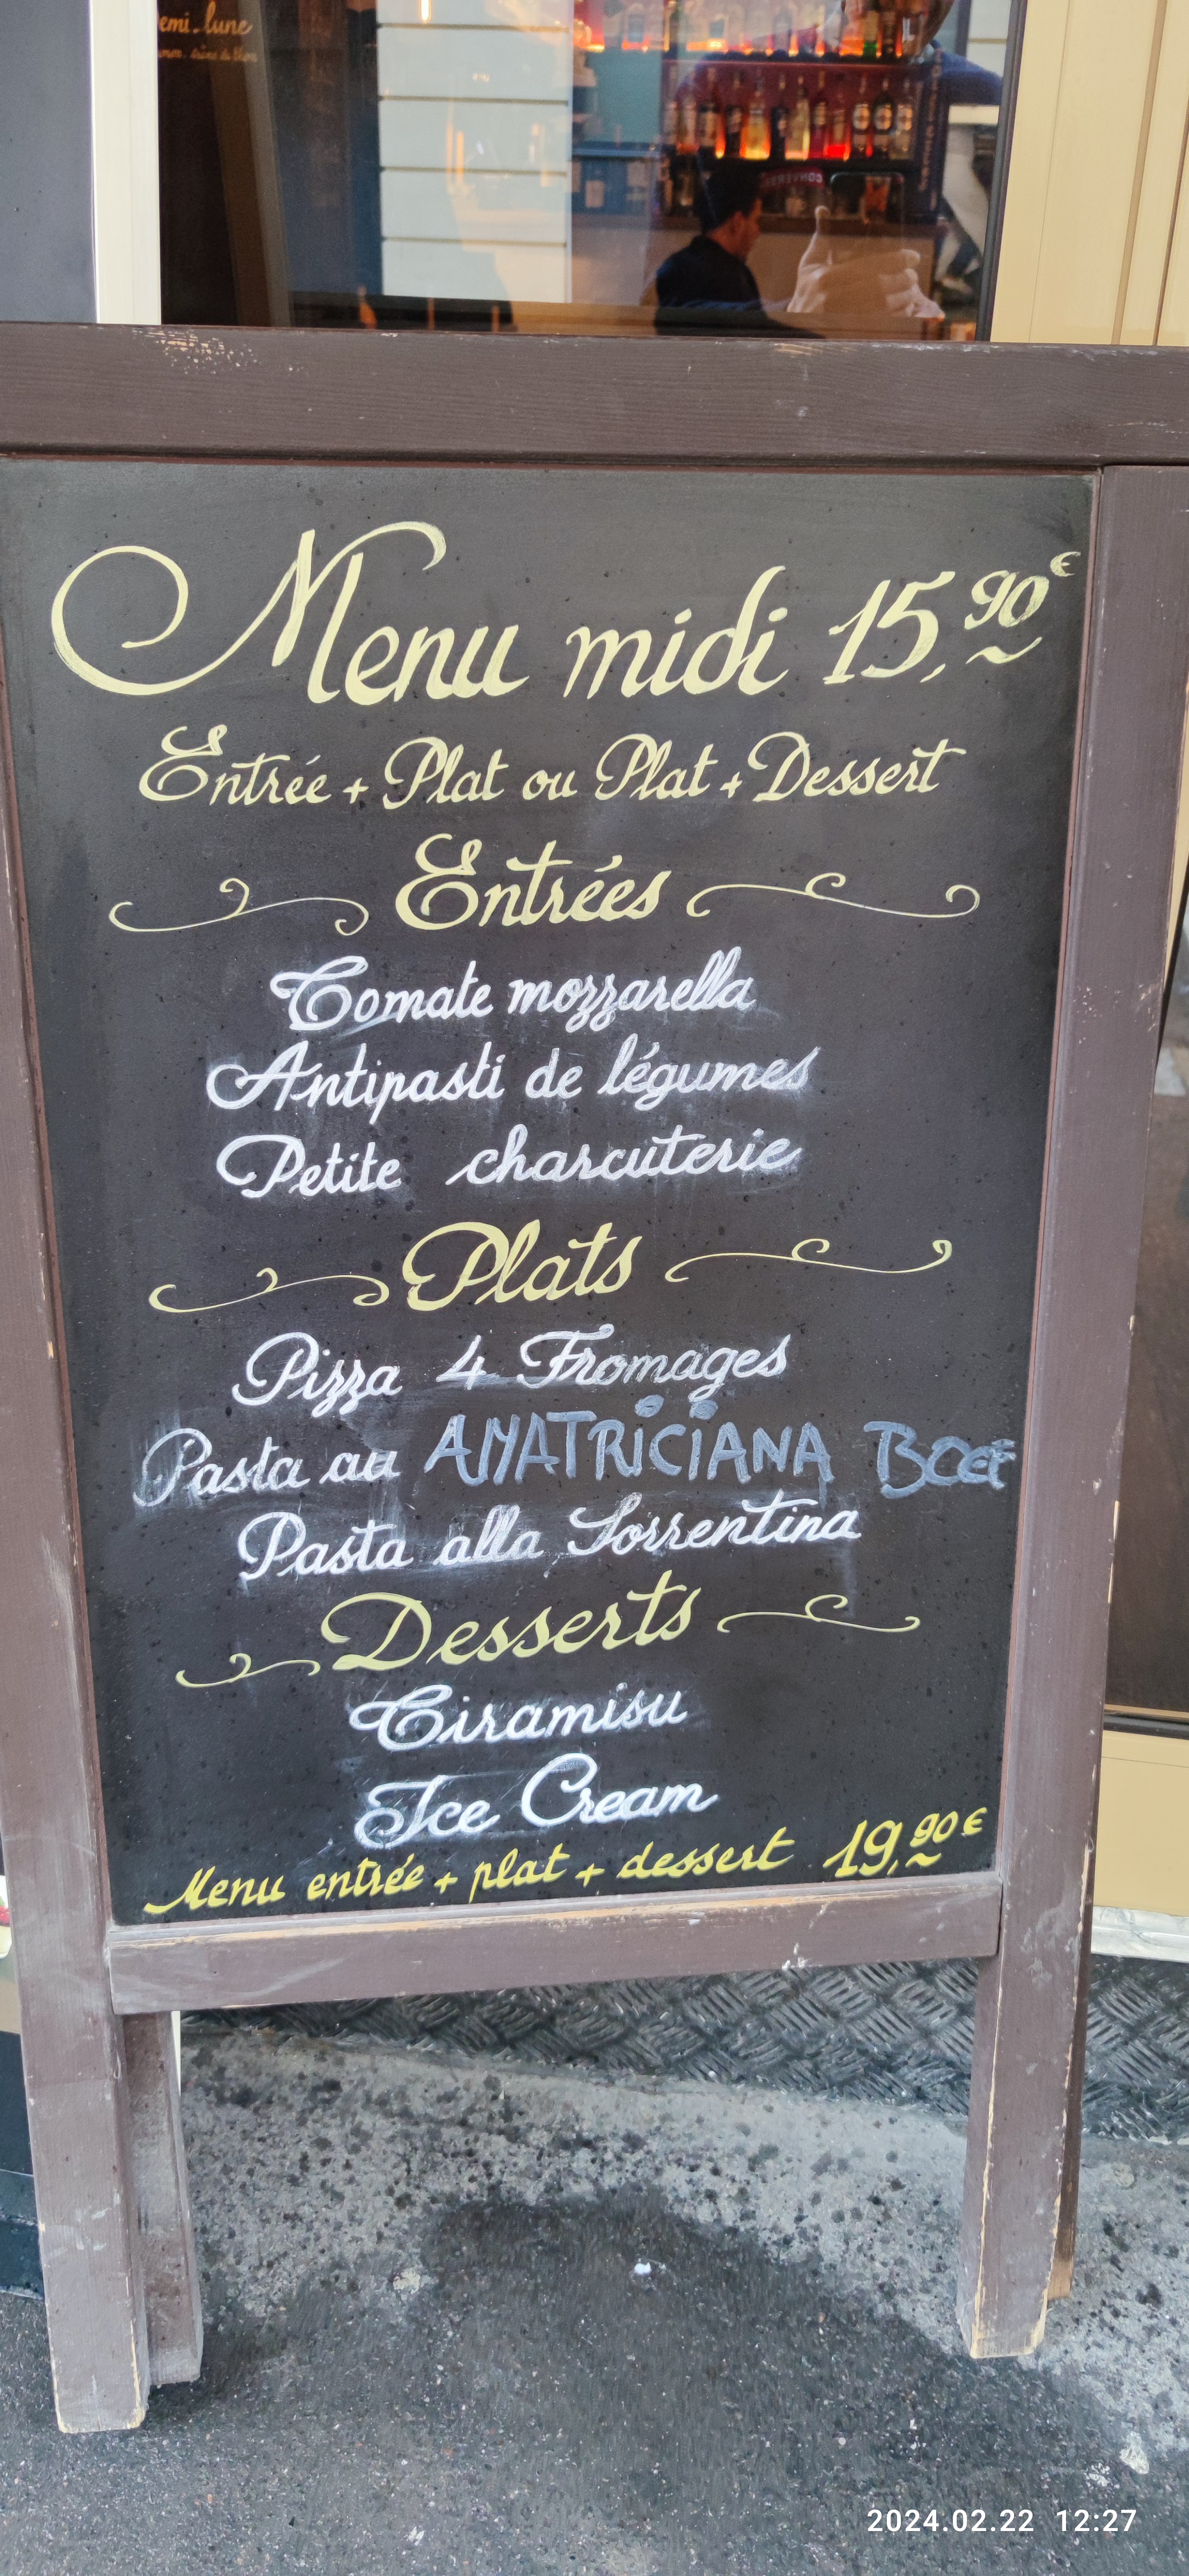 emi.lune
Menu midi 15,90€
Entrée + Plat ou Plat + Dessert
Entrées
Tomate mozzarella
Antipasti de légumes
Petite charcuterie
Plats
Pizza 4 Fromages
Pasta au AMATRICIANA
Pasta alla Sorrentina
Desserts
Tiramisu
Ice Cream
Menu entrée + plat + dessert 19,90€
2024.02.22 12:27